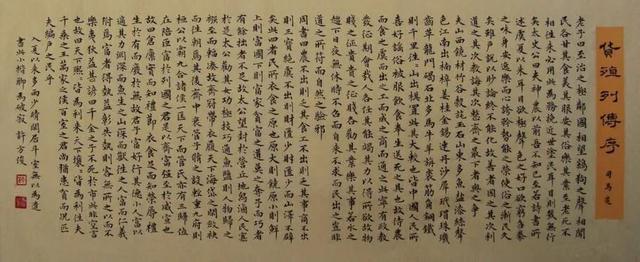 貨殖列傳序
司馬遷
老子曰至治之極鄰國相望雞狗之聲相聞
民各甘其食美其服安其俗樂其業至老死不
相往來必用此為務輓近世塗民耳目則幾無行
矣太史公曰夫神農以前吾不知已至若詩書所
述虞夏以來耳目欲極聲色之好口欲窮芻豢
之味身安逸樂而心矜夸勢能之榮使俗之漸民久
矣雖戶說以眇論終不能化故善者因之其次利
道之其次教誨之其次整齊之最下者與之爭
夫山西饒材竹穀纑旄玉石山東多魚鹽漆絲聲
色江南出枏梓薑桂金錫連丹沙犀玳瑁珠璣
齒革龍門碣石北多馬牛羊旃裘筋角銅鐵
則千里往往山出棋置此其大較也皆中國人民所
喜好謠俗被服飲食奉生送死之具也故待農
而食之虞而出之工而成之商而通之此寧有政教
發徵期會哉人各任其能竭其力以得所欲故物
賤之徵貴貴之徵賤各勸其業樂其事若水之
趨下日夜無休時不召而自來不求而民出之豈非
道之所符而自然之驗邪
周書曰農不出則乏其食工不出則乏其事商不出
則三寶絕虞不出則財匱少財匱少而山澤不辟
矣此四者民所衣食之原也原大則饒原小則鮮
上則富國下則富家貧富之道莫之奪予而巧者
有餘拙者不足故太公望封於營丘地潟鹵人民寡
於是太公勸其女功極技巧通魚鹽則人物歸之
繦至而輻湊故齊冠帶衣履天下海岱之間斂袂
而往朝焉其後齊中衰管子修之設輕重九府則
桓公以霸九合諸侯一匡天下而管氏亦有三歸位
在陪臣富於列國之君是以齊富彊至於威宣也
故曰倉廩實而知禮節衣食足而知榮辱禮
生於有而廢於無故君子富好行其德小人富以
適其力淵深而魚生之山深而獸往之人富而仁義
附焉富者得勢益彰失勢則客無所之以而不
樂夷狄益甚諺曰千金之子不死於市此非空言
也故曰天下熙熙皆為利來天下壤壤皆為利往夫
千乘之王萬家之侯百室之君尚猶患貧而況匹
夫編戶之民乎
入夏以來多雨少晴閒居斗室無以為遣
書此小楷聊為破寂 許方俊